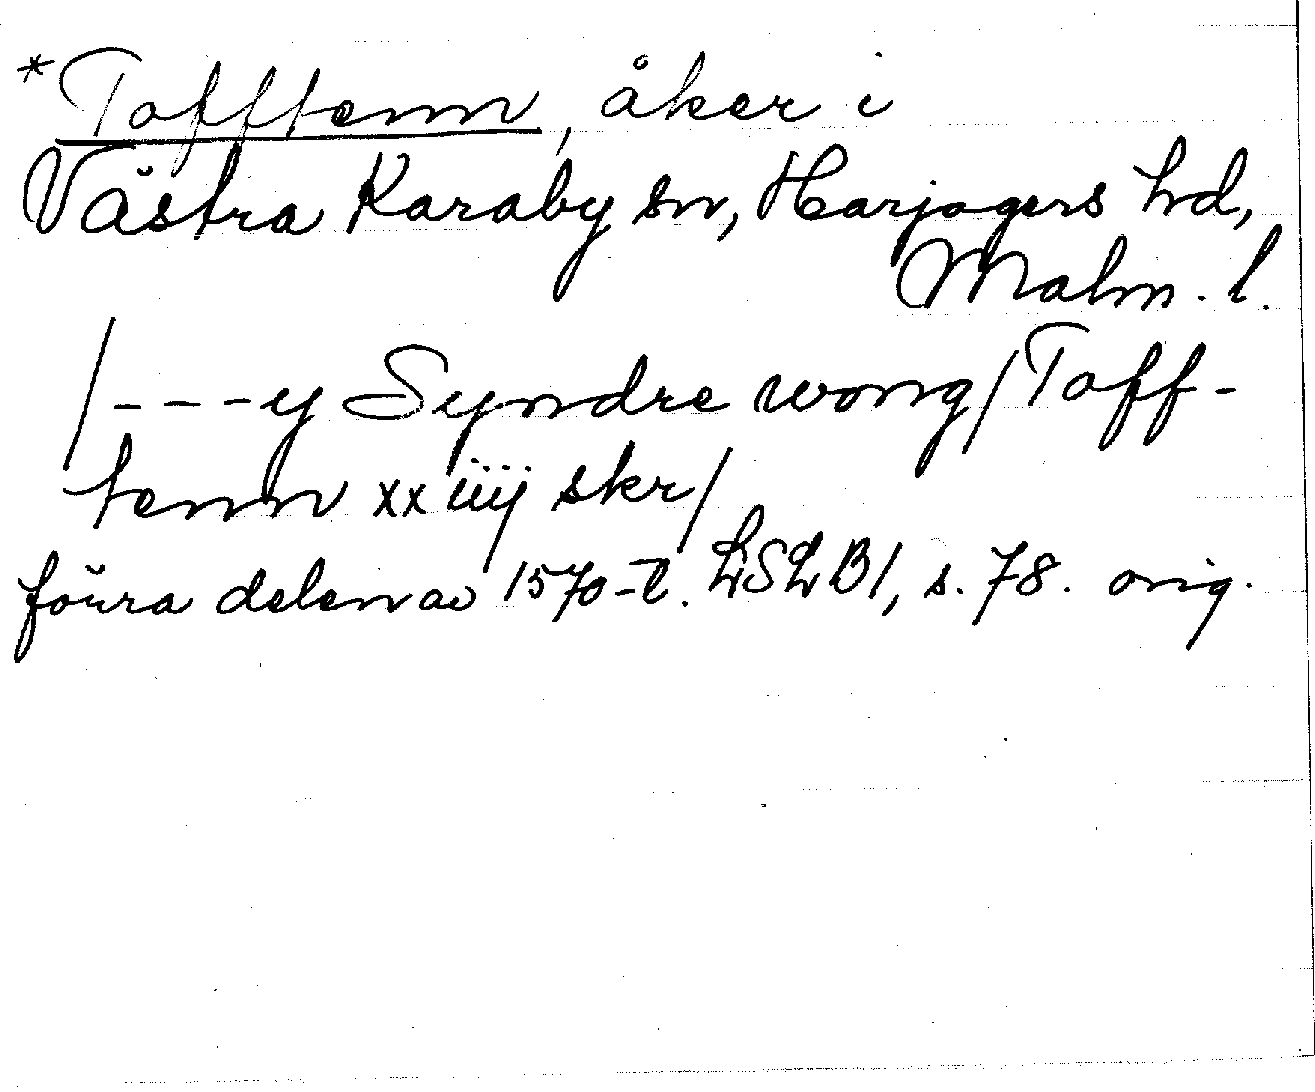 *Tofftenn, åker i
Västra Karaby sn, Harjagers hd,
Malm. l.
/---y Syndre wong/Toff-
tenn xx iiij skr/
förra delen av 1570-t. LSLB1, s. 78. orig.